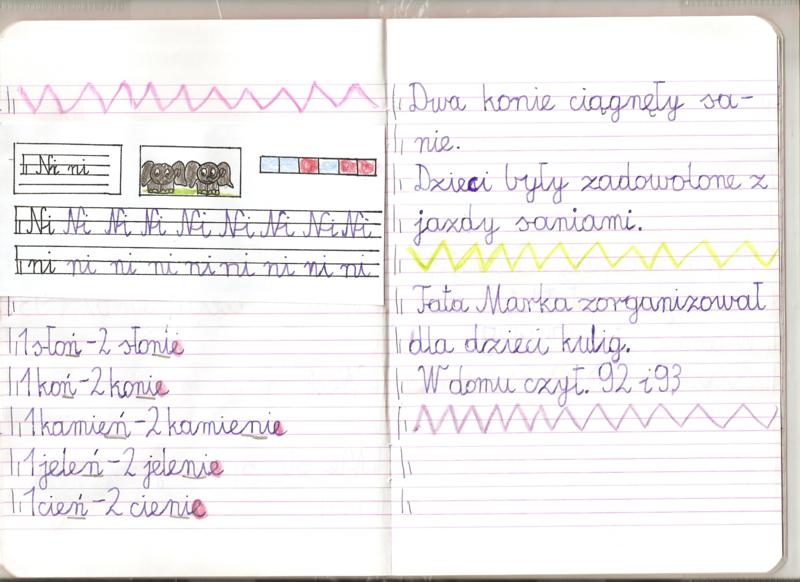 Ni ni
Ni Ni Ni Ni Ni Ni Ni Ni Ni
ni ni ni ni ni ni ni ni ni
1 słoń – 2 słonie
1 koń – 2 konie
1 kamień – 2 kamienie
1 jeleń – 2 jelenie
1 cień – 2 cienie
Dwa konie ciągnęły sa-
nie.
Dzieci były zadowolone z
jazdy saniami.
Tata Marka zorganizował
dla dzieci kulig.
W domu czyt. 92 i 93